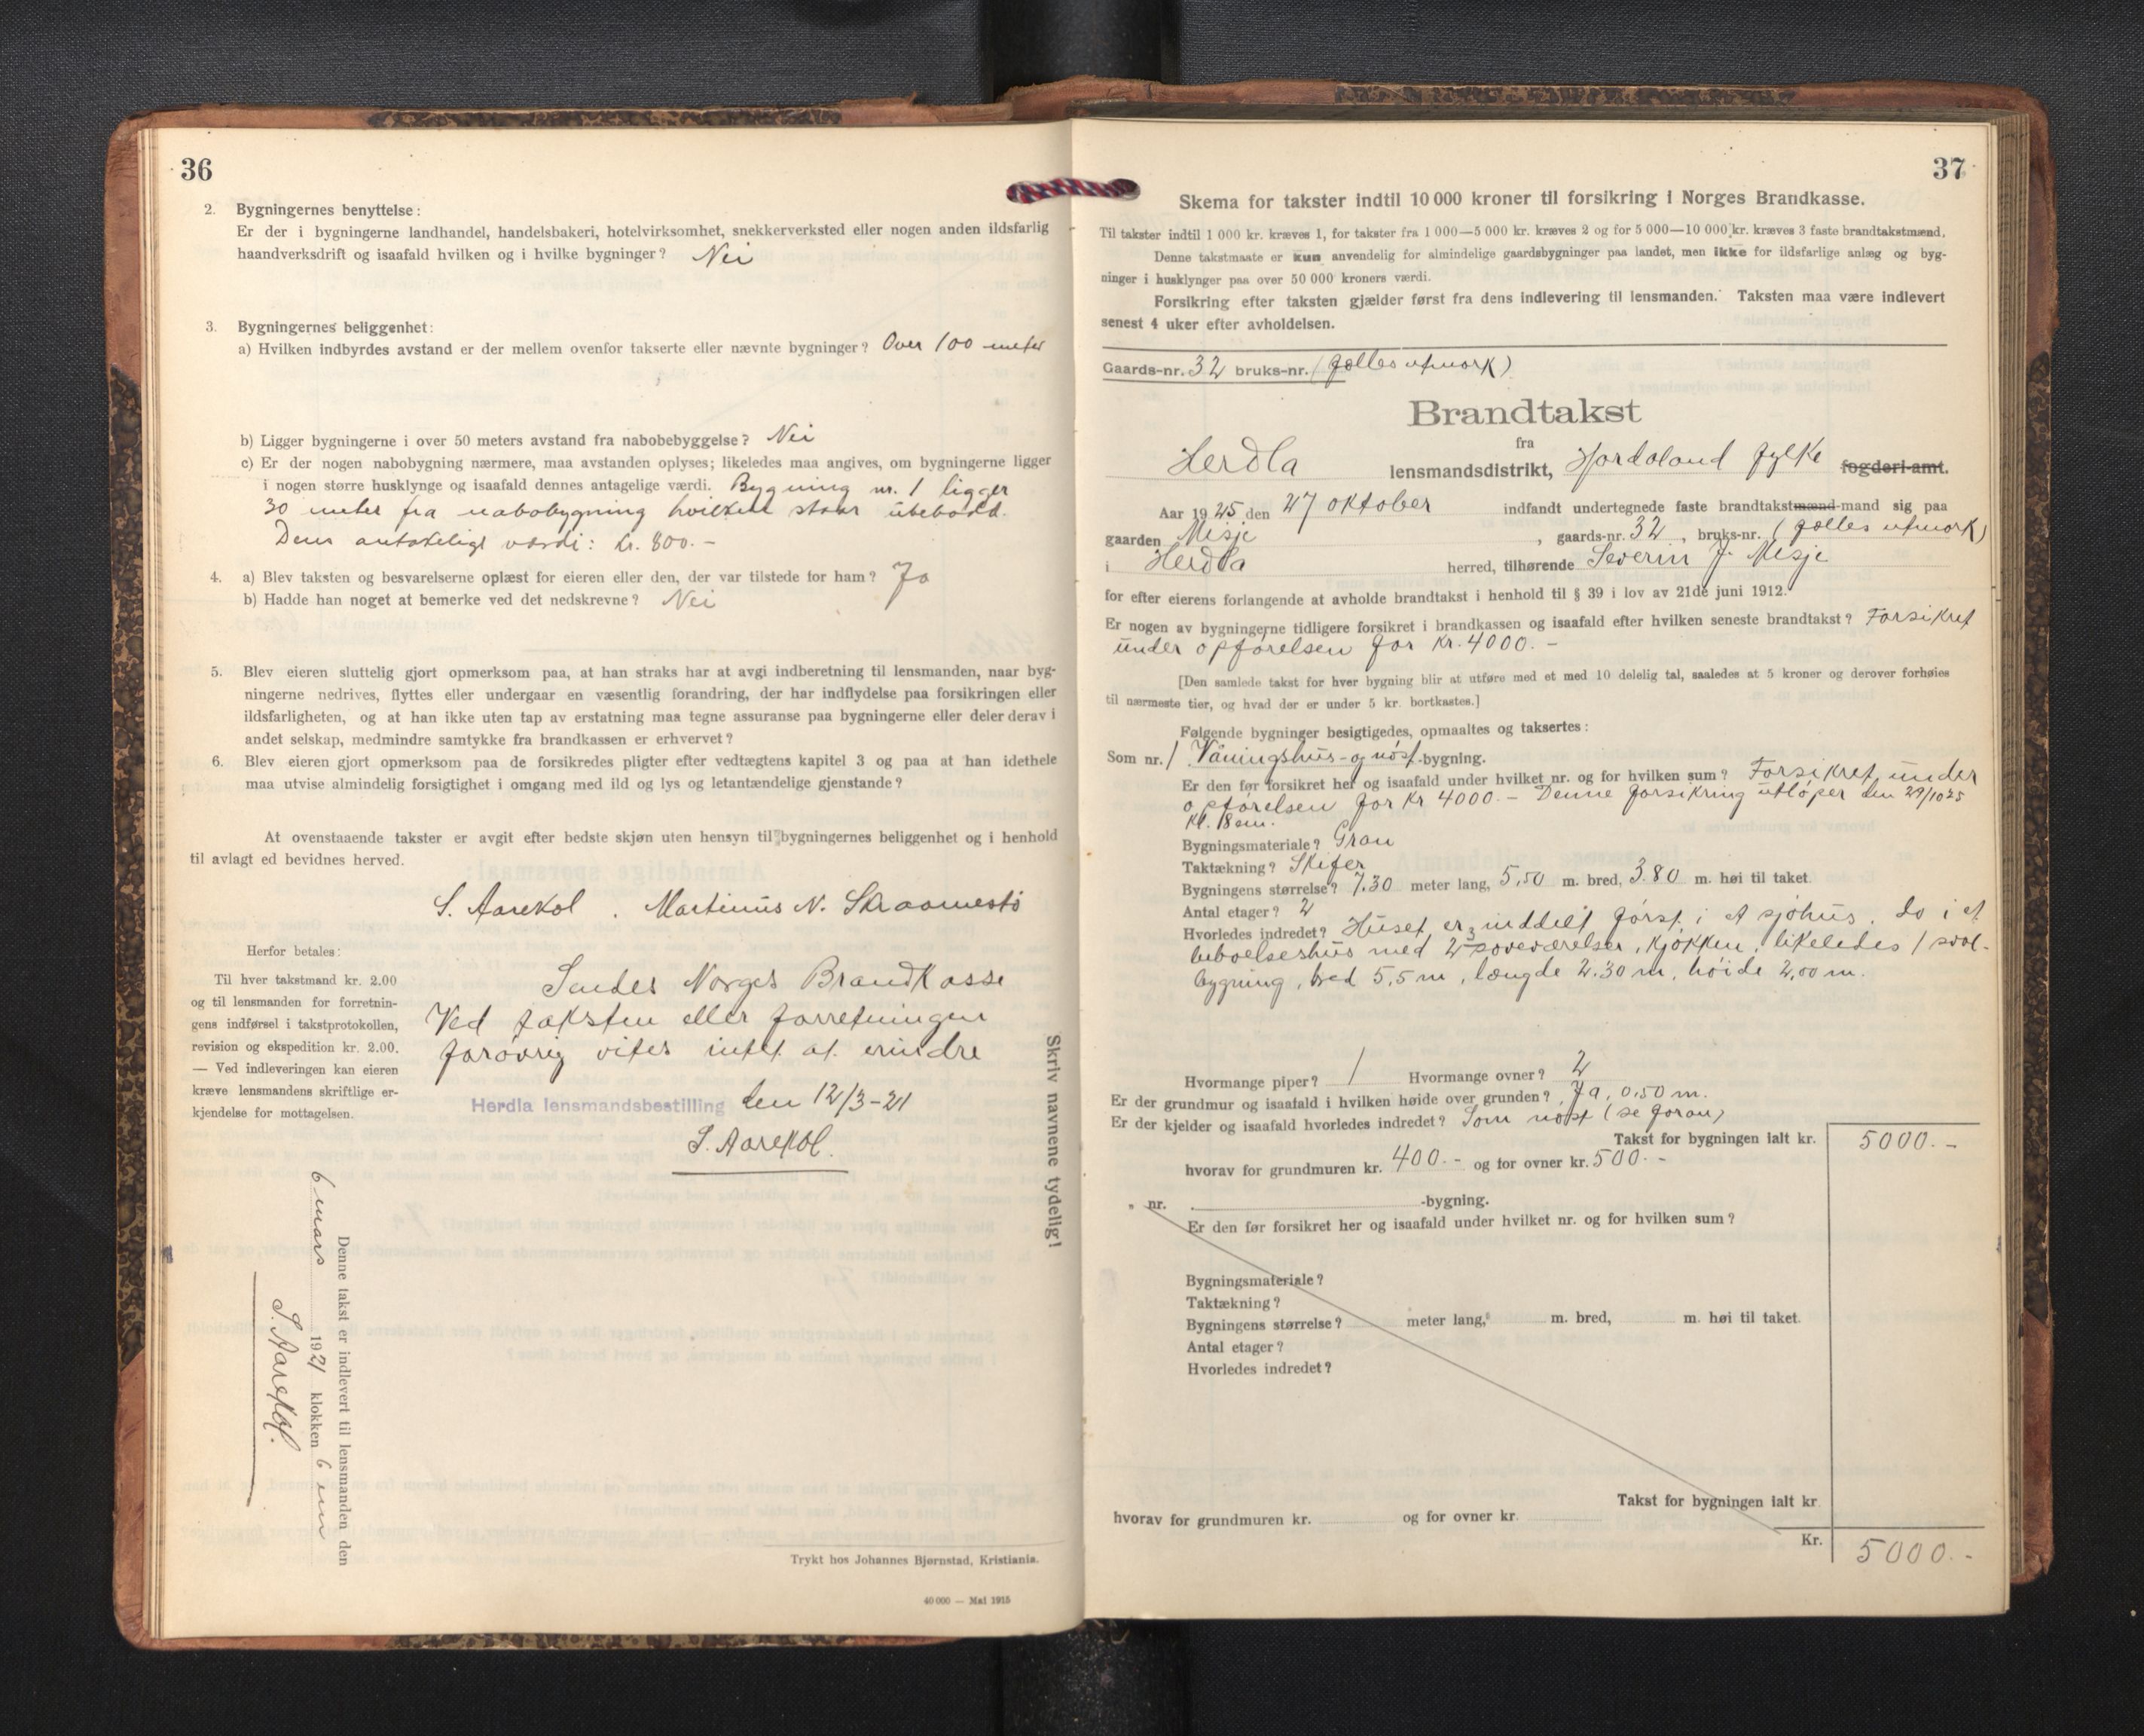 36
2. Bygningernes benyttelse:
Er der i bygningerne landhandel, handelsbakeri, hotelvirksomhet, snekkerverksted eller nogen anden ildsfarlig
haandverksdrift og isaafald hvilken og i hvilke bygninger? Nei
3. Bygningernes beliggenhet:
a) Hvilken indbyrdes avstand er der mellem ovenfor takserte eller nævnte bygninger? Over 100 meter
b) Ligger bygningerne i over 50 meters avstand fra nabobebyggelse? Nei
c) Er der nogen nabobygning nærmere, maa avstanden oplyses; likeledes maa angives, om bygningerne ligger
i nogen større husklynge og isaafald dennes antagelige værdi. Bygning nr. 1 ligger
30 meter fra nabobygning hvilken staar ubeboad.
Dens antakelige værdi: kr. 800.-
4. a) Blev taksten og besvarelserne oplæst for eieren eller den, der var tilstede for ham? Ja
b) Hadde han noget at bemerke ved det nedskrevne? Nei
5. Blev eieren sluttelig gjort opmerksom paa, at han straks har at avgi indberetning til lensmanden, naar byg-
ningerne nedrives, flyttes eller undergaar en væsentlig forandring, der har indflydelse paa forsikringen eller
ildsfarligheten, og at han ikke uten tap av erstatning maa tegne assuranse paa bygningerne eller deler derav i
andet selskap, medmindre samtykke fra brandkassen er erhvervet?
6. Blev eieren gjort opmerksom paa de forsikredes pligter efter vedtægtens kapitel 3 og paa at han idethele
maa utvise almindelig forsigtighet i omgang med ild og lys og letantændelige gjenstande?
At ovenstaaende takster er avgit efter bedste skjøn uten hensyn til bygningernes beliggenhet og i henhold
til avlagt ed bevidnes herved.
S. Aarekol . Martinus N. Skraamestø
Herfor betales:
Til hver takstmand kr. 2.00
og til lensmanden for forretnin-
gens indførsel i takstprotokollen,
revision og ekspedition kr. 2.00.
— Ved indleveringen kan eieren
kræve lensmandens skriftlige er-
kjendelse for mottagelsen.
Sendes Norges Brandkasse
Ved taksten eller forretningen
forøvrig vites intet at erindre
Herdla lensmandsbestilling den 12/3-21
S. Aarekol.
Skriv navnene tydelig!
Denne takst er indlevert til lensmanden den
6 mars 1921 klokken 6 em
S. Aarekol.
Trykt hos Johannes Bjørnstad, Kristiania.
40 000 — Mai 1915
37
Skema for takster indtil 10 000 kroner til forsikring i Norges Brandkasse.
Til takster indtil 1 000 kr. kræves 1, for takster fra 1 000—5 000 kr. kræves 2 og for 5 000—10 000 kr. kræves 3 faste brandtakstmænd.
Denne takstmaate er kun anvendelig for almindelige gaardsbygninger paa landet, men ikke for ildsfarlige anlæg og byg-
ninger i husklynger paa over 50 000 kroners værdi.
Forsikring efter taksten gjælder først fra dens indlevering til lensmanden. Taksten maa være indlevert
senest 4 uker efter avholdelsen.
Gaards-nr. 32 bruks-nr. (fælles utmark)
Brandtakst
fra
Herdla lensmandsdistrikt, Hordaland fylke fogderi-amt.
Aar 1925 den 27 oktober indfandt undertegnede faste brandtakstmænd-mand sig paa
gaarden Misje , gaards-nr. 32 , bruks-nr. (fælles utmark)
i Herdla herred, tilhørende Severin J. Misje
for efter eierens forlangende at avholde brandtakst i henhold til § 39 i lov av 21de juni 1912.
Er nogen av bygningerne tidligere forsikret i brandkassen og isaafald efter hvilken seneste brandtakst? Forsikret
under opførelsen for kr. 4000.-
[Den samlede takst for hver bygning blir at utføre med et med 10 delelig tal, saaledes at 5 kroner og derover forhøies
til nærmeste tier, og hvad der er under 5 kr. bortkastes.]
Følgende bygninger besigtigedes, opmaaltes og taksertes:
Som nr. 1 Våningshus- og nøst-bygning.
Er den før forsikret her og isaafald under hvilket nr. og for hvilken sum? Forsikret under
opførelsen for kr 4000.- Denne forsikring utløper den 29/10 25
kl. 18 em.
Bygningsmateriale? Gran
Taktækning? Skifer
Bygningens størrelse? 7.30 meter lang, 5,50 m. bred, 3.80 m. høi til taket.
Antal etager? 2
Hvorledes indredet? Huset er inddelt først i et sjøhus. do i et
beboelseshus med 3 soveværelser, kjøkken, likeledes 1 sval-
bygning, bred 5,5 m, længde 2.30 m, høide 2,00 m.
Hvormange piper? 1 Hvormange ovner? 2
Er der grundmur og isaafald i hvilken høide over grunden? Ja, 0,50 m.
Er der kjelder og isaafald hvorledes indredet? Som nøst (se foran)
Takst for bygningen ialt kr. 5000.-
hvorav for grundmuren kr. 400.- og for ovner kr. 500.-
" nr. -bygning.
Er den før forsikret her og isaafald under hvilket nr. og for hvilken sum?
Bygningsmateriale?
Taktækning?
Bygningens størrelse? meter lang, m. bred, m. høi til taket.
Antal etager?
Hvorledes indredet?
Takst for bygningen ialt kr
hvorav for grundmuren kr. og for ovner kr.
Kr. 5000.-